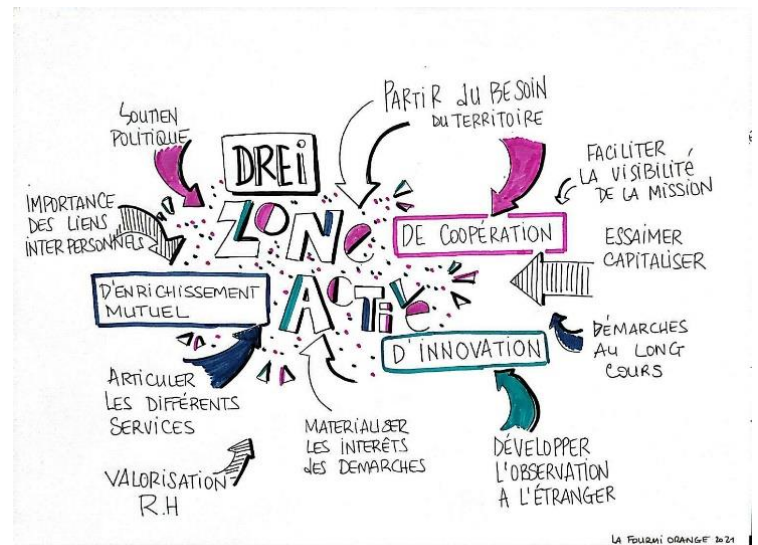 SOUTIEN
POLITIQUE
PARTIR dU BESOIN
DU TERRITOIRE
DREi
ZONe
ACTive
FACILITER
LA VISIBILITÉ
DE LA MISSION
IMPORTANCE
DES LIENS
INTERPERSONNELS
DE COOPÉRATION
ESSAIMER
CAPITALISER
D'ENRICHISSEMENT
MUTUEL
D'INNOVATION
DÉMARCHES
AU LONG
COURS
ARTICULER
LES DIFFÉRENTS
SERVICES
MATERIALISER
LES INTERÊTS
des DEMARCHES
DÉVELOPPER
L'OBSERVATION
A L'ÉTRANGER
VALORISATION
R.H
LA FOURMI ORANGE 2021